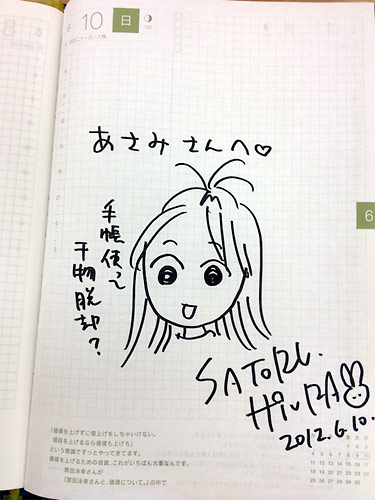 10 日
あさみさんへ♡
手帳使って
干物脱却?
6
SATORU.
HIURA
2012.6.10.
「価値を上げずに値上げをしちゃいけない。
値段を上げるなら価値も上げろ」
という意識でずっとやってきてます。
価値を上げるための投資、これがいちばん大事なんです。
──原田泳幸さんが
『原田泳幸さんと、価値について。』の中で